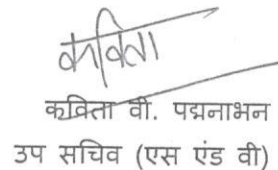 कविता
कविता वी. पद्मनाभन
उप सचिव (एस एंड वी)